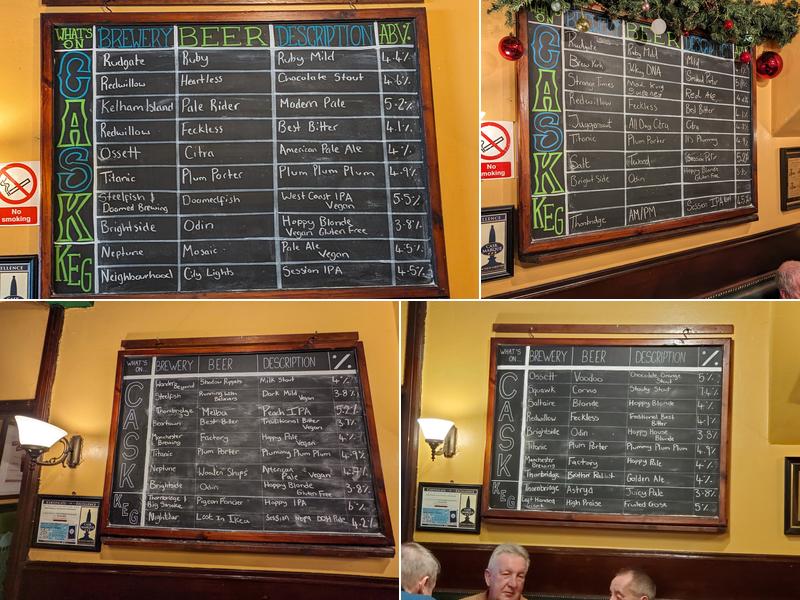 WHAT'S ON BREWERY BEER DESCRIPTION ABV%
CASK
Rudgate Ruby Ruby Mild 4.4%
Redwillow Heartless Chocolate Stout 4.6%
Kelham Island Pale Rider Modern Pale 5.2%
Redwillow Feckless Best Bitter 4.1%
Ossett Citra American Pale Ale 4%
Titanic Plum Porter Plum Plum Plum 4.9%
Steelfish & Doomed Brewing Doomedfish West Coast IPA Vegan 5.5%
Brightside Odin Hoppy Blonde Vegan Gluten Free 3.8%
KEG
Neptune Mosaic Pale Ale Vegan 4.5%
Neighbourhood City Lights Session IPA 4.5%
No smoking
ON BREWERY BEER DESCRIPTION
CASK
Rudgate Ruby Mild Mild
Brew York DNA Smoked Porter
Strange Times Red Ale
Redwillow Feckless Best Bitter
Juggernaut All Day Citra Citra
Titanic Plum Porter It's Plummy
Salt Session Pale
Brightside Odin Hoppy Blonde Gluten Free
KEG
Thornbridge AM/PM Session IPA
No smoking
CASK MARQUE
WHAT'S ON... BREWERY BEER DESCRIPTION %
CASK
Wander Beyond Shadow Puppets Milk Stout
Steelfish Running With Dark Mild Vegan 3.8%
Thornbridge Melba Peach IPA 5.2%
Beartown Best Bitter Traditional Bitter Vegan 3.7%
Manchester Brewing Factory Hoppy Pale Vegan 4%
Titanic Plum Porter Plummy Plum Plum 4.9%
Neptune Wooden Ships American Pale Vegan
Brightside Odin Hoppy Blonde Gluten Free 3.8%
KEG
Thornbridge & Big Smoke Pigeon Fancier Hoppy IPA 6%
Nightjar Lost In Ikea Session Hopp DDH Pale 4.2%
WHAT'S ON... BREWERY BEER DESCRIPTION %
CASK
Ossett Voodoo Chocolate Orange Stout 5%
Squawk Corvus Stouty Stout
Saltaire Blonde Hoppy Blonde 4%
Redwillow Feckless Traditional Best Bitter 4.1%
Brightside Odin Hoppy House Blonde 3.8%
Titanic Plum Porter Plummy Plum Plum 4.9%
Manchester Brewing Factory Hoppy Pale 4%
Thornbridge Brother Rabbit Golden Ale 4%
KEG
Thornbridge Astryd Juicy Pale 3.8%
Left Handed Giant High Praise Fruited Gose 5%